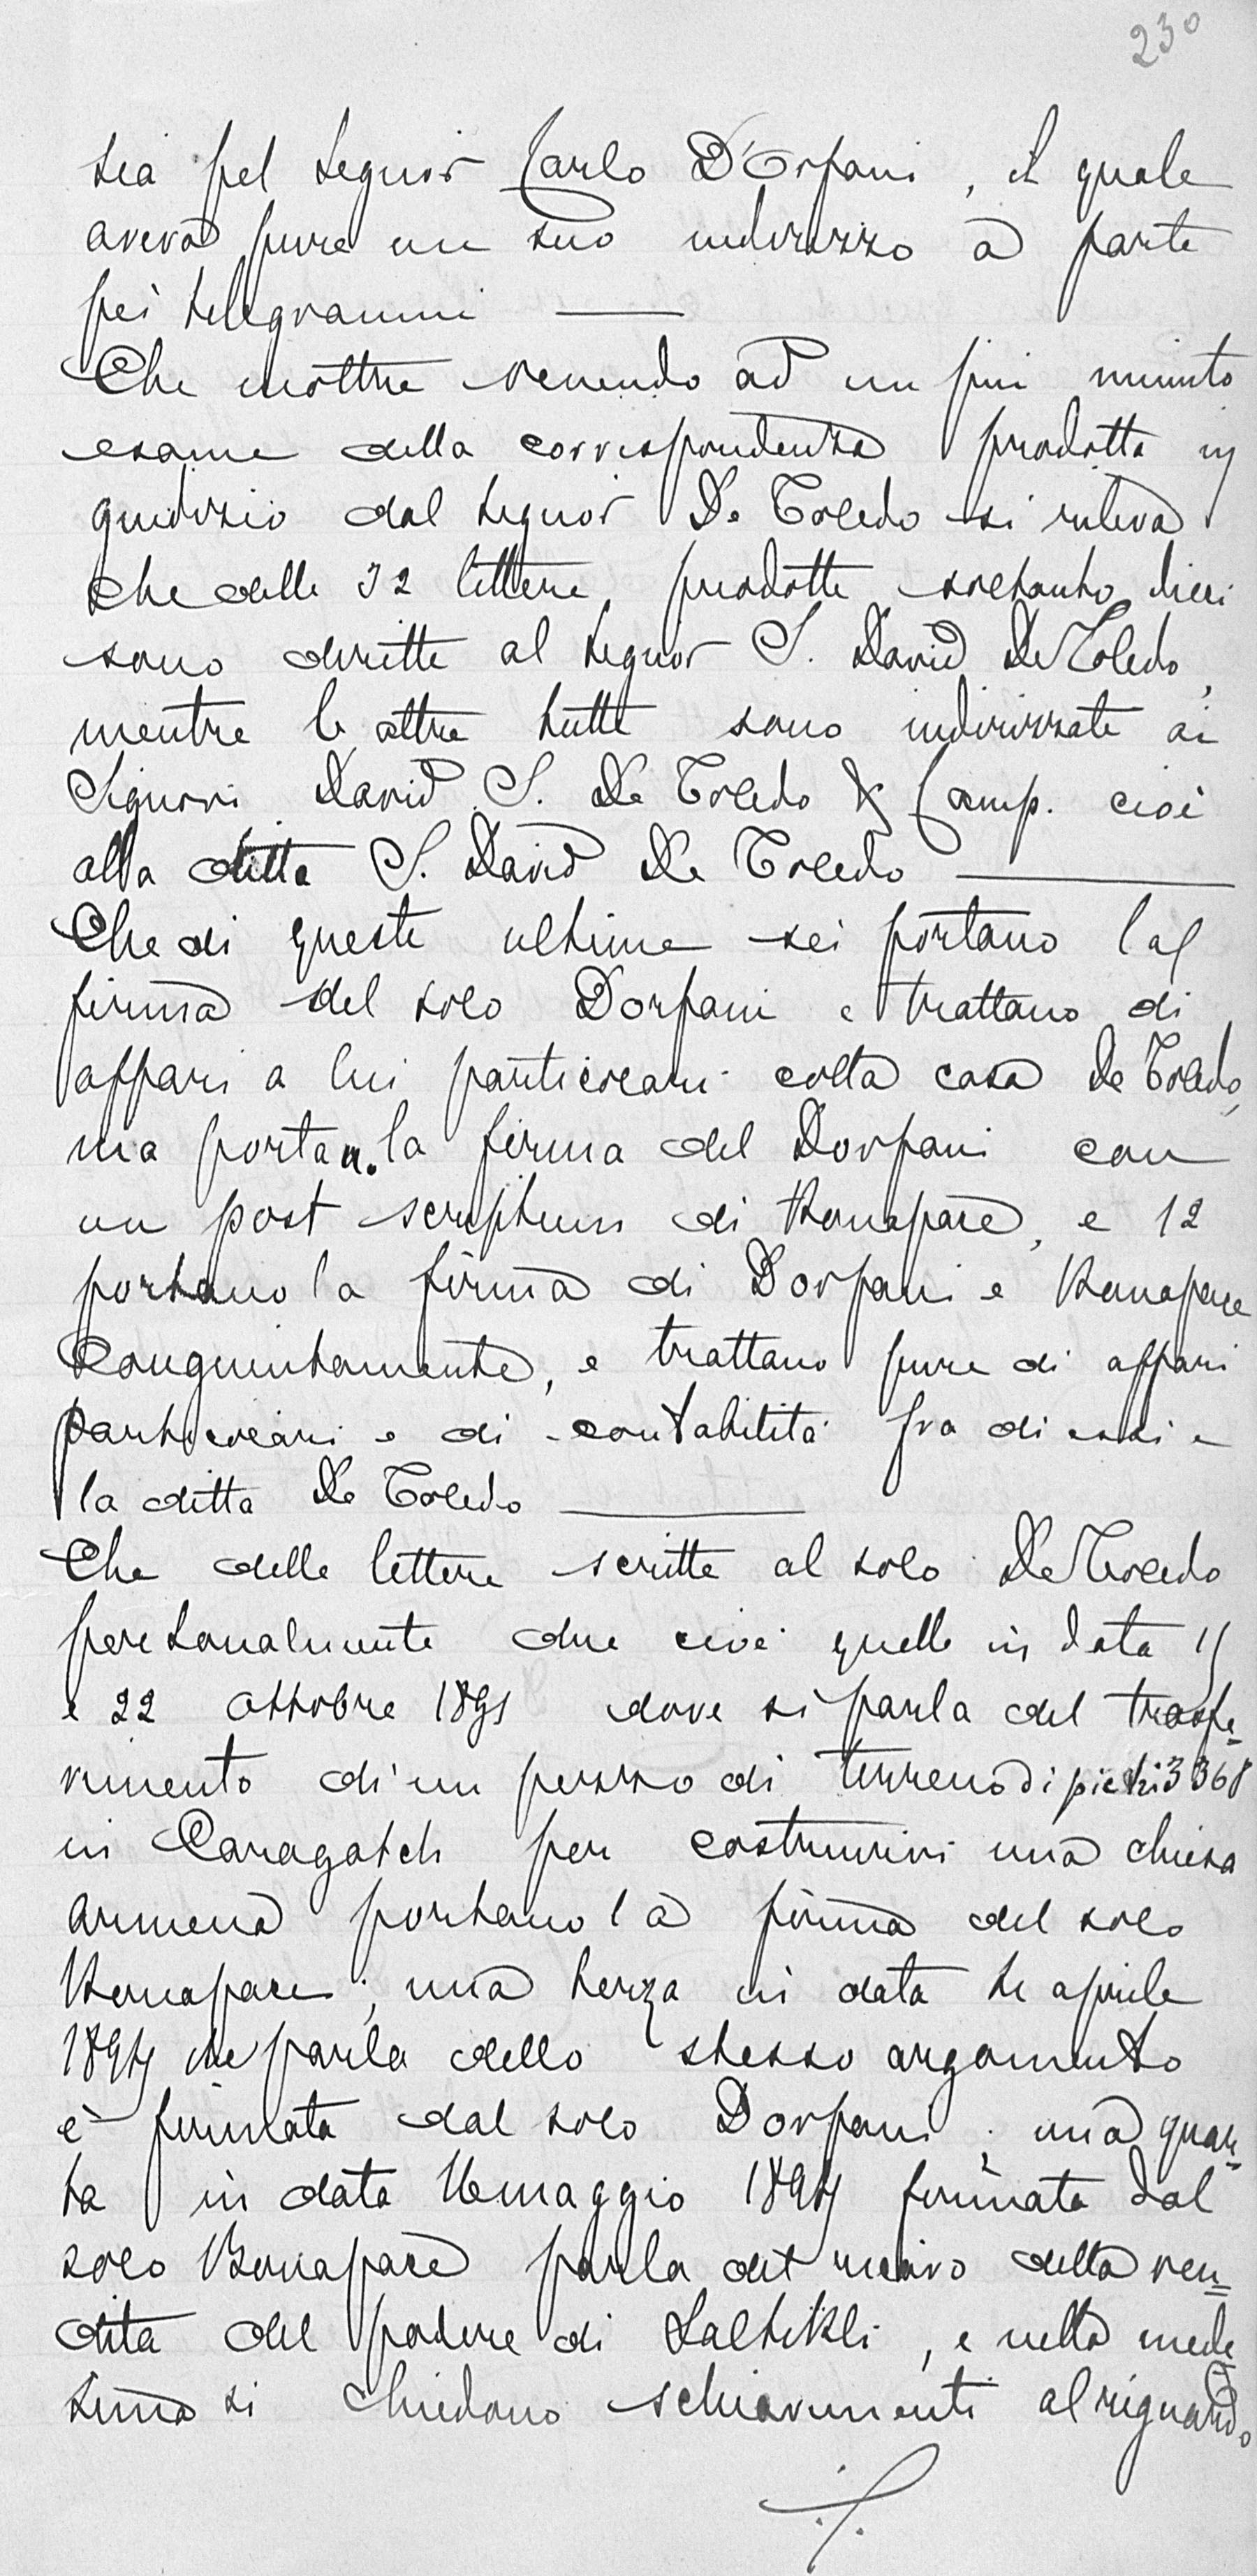 230
sia pel signor Carlo D'Orfani, il quale
aveva pure un suo indirizzo a parte
pei telegrammi
Che inoltre venendo ad un piu minuto
esame della corrispondenza prodotta in
giudizio dal signor De Toledo si rileva
che delle 32 lettere prodotte soltanto dieci
sono dirette al signor S. David De Toledo,
mentre le altre tutte sono indirizzate ai
Signori David S. De Toledo & Comp. cioè
alla ditta S. David De Toledo
Che di queste ultime sei portano la
firma del solo Dorfani e trattano di
affari a lui particolari colla casa De Toledo,
una portan la firma del Dorfani con
un post scriptum di Bonapace, e 12
portano la firma di Dorfani e Bonapace
Congiuntamente, e trattano pure di affari
particolari e di contabilità fra di essi e
la ditta De Toledo
Che delle lettere scritte al solo De Toledo
personalmente due cioè quelle in data
e 22 ottobre 1891 dove si parla del trasfe-
rimento di un pezzo di terreno di pichi 3368
in Caragatch per costruirvi una chiesa
armena portano la firma del solo
Bonapace; una terza in data aprile
che parla dello stesso argomento
è firmata dal solo Dorfani; una quar-
ta in data maggio firmata dal
solo Bonapace parla del della ven=
dita del podere di Saltikli, e nella mede
sima si chiedono schiarimenti al riguardo